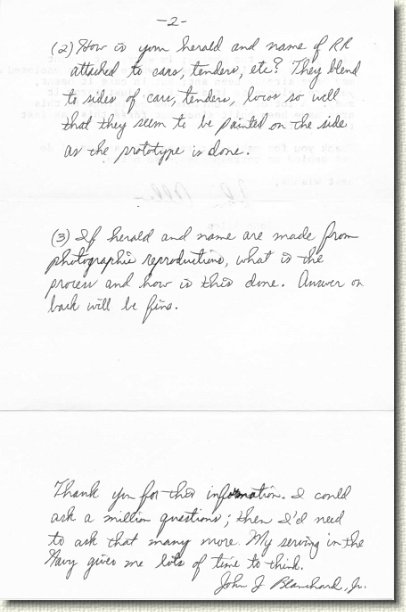 -2-
(2) How is your herald and name of RR
attached to cars, tenders, etc? They blend
to sides of cars, tenders, locos so well
that they seem to be painted on the side
as the prototype is done.
(3) If herald and name are made from
photographic reproductions, what is the
process and how is this done. Answer on
back will be fine.
Thank you for this information. I could
ask a million questions; then I'd need
to ask that many more. My serving in the
Navy gives me lots of time to think.
John J Blanchard, Jr.